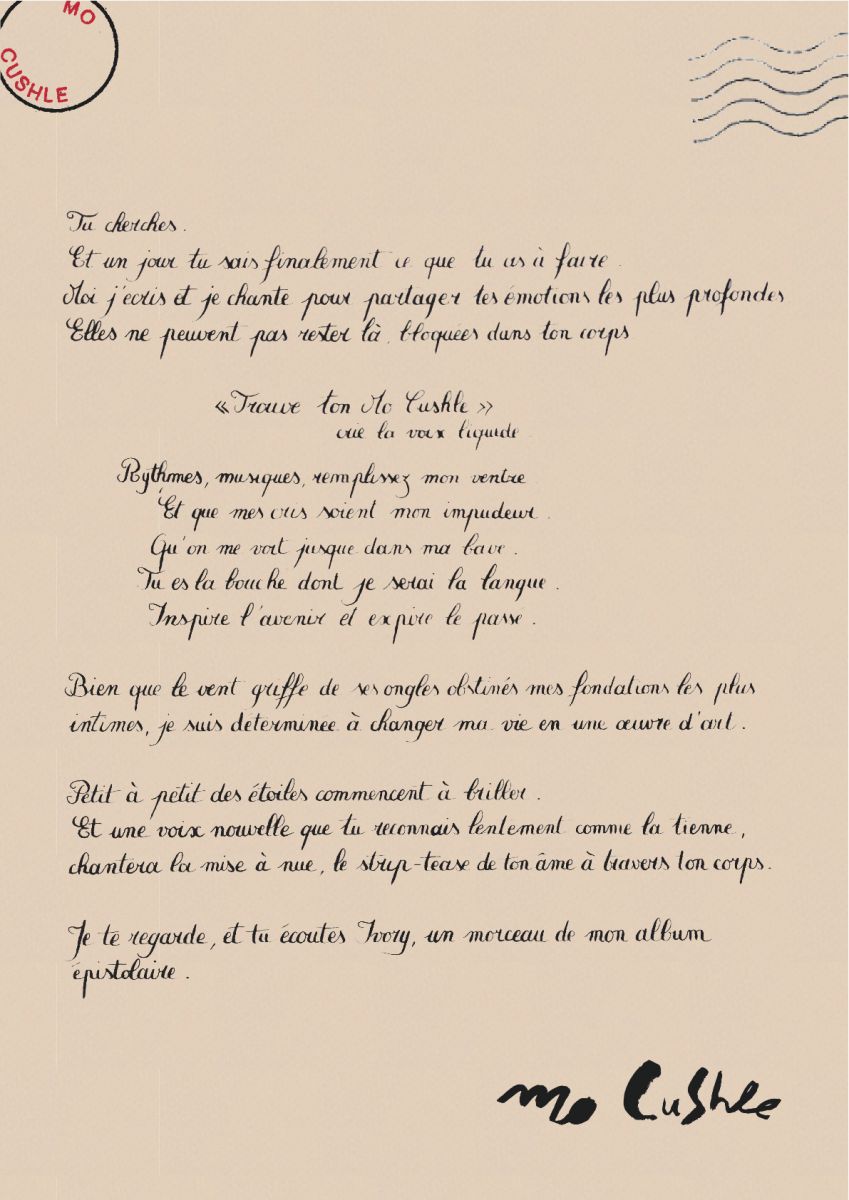 MO
CUSHLE
Tu cherches.
Et un jour tu sais finalement ce que tu as à faire.
Moi j'écris et je chante pour partager tes émotions les plus profondes
Elles ne peuvent pas rester là, bloquées dans ton corps
«Trouve ton Mo Cushle»
crie la voix liquide
Rythmes, musiques, remplissez mon ventre
Et que mes cris soient mon impudeur.
Qu'on me voit jusque dans ma bave.
Tu es la bouche dont je serai la langue.
Inspire l'avenir et expire le passé.
Bien que le vent griffe de ses ongles obstinés mes fondations les plus
intimes, je suis déterminée à changer ma vie en une œuvre d'art.
Petit à petit des étoiles commencent à briller.
Et une voix nouvelle que tu reconnais lentement comme la tienne,
chantera la mise à nue, le strip-tease de ton âme à travers ton corps.
Je te regarde, et tu écoutes Ivory, un morceau de mon album
épistolaire.
Mo Cushle